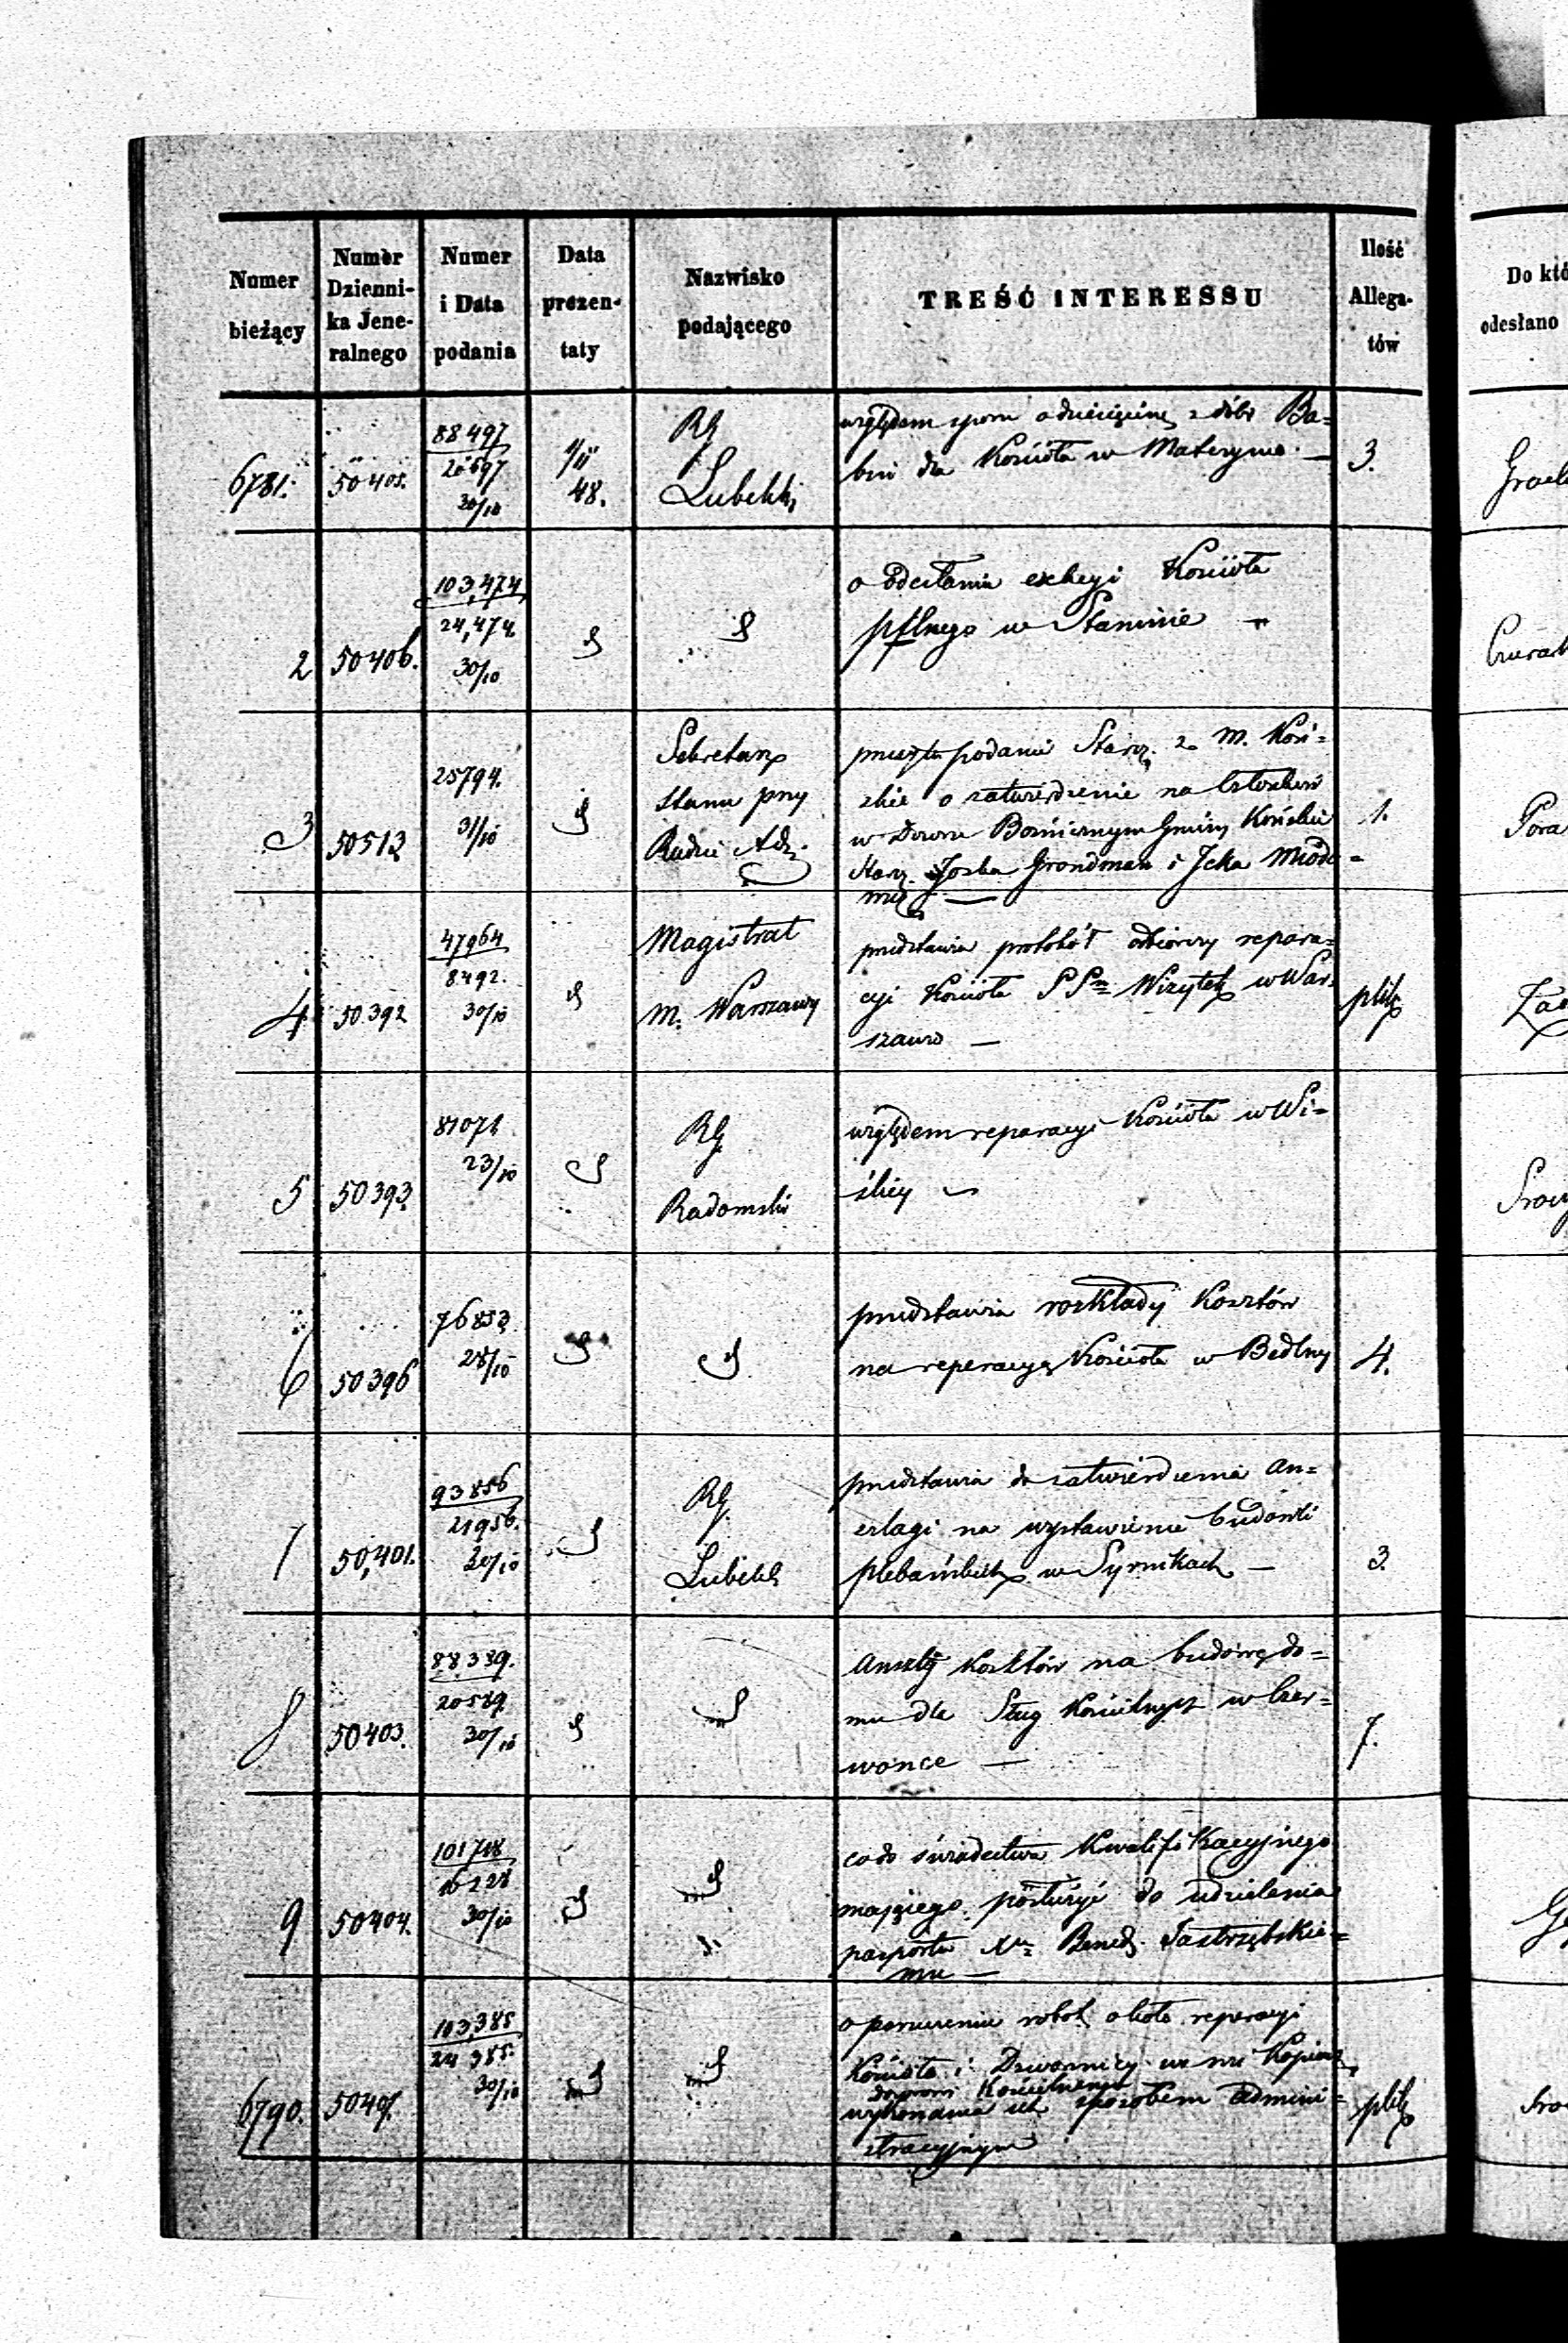 Numer bieżący
Numer Dziennika Jeneralnego
Numer i Data podania
Data prezentaty
Nazwisko podającego
TREŚĆ INTERESSU
Ilość Allegatów
6781. 50405. 88497 20697 30/10 1/11 48. RG Lubelski
względem sporu o dziesięcinę z dóbr Ba=
bin dla Kościoła w Matczynie. — 3.
2 50406. 103,474 24,474. 30/10
o odesłanie exlegi Kościoła
pflnego w Staninie
3 50513 25794. 31/10
Sekretarz
Stanu przy
Radzie Adz.
podanie Starz. z M. Koń=
skie o zatwierdzenie na Członków
w Dozorze Bożniczym Gminy Końskie
Starz. Joska Grondman i Icka Miodo=
1.
4 50392 47964 8492. 30/10
Magistrat
m. Warszawy
przedstawia protokół odbiorczy repara=
cyi Kościoła PPn Wizytek w War=
szawie —
plik
5 50393. 81071 23/10
RG
Radomski
względem reparacyi Kościoła w Wi=
ślicy
6 50396 76853 28/10
przedstawia rozkłady Kosztów
na reperacyę Kościoła w Bedlny 4.
7 50,401. 93856 21956. 30/10
RG
Lubelsk
przedstawia do zatwierdzenia an=
szlagi na wystawienie budowli
plebańskich w Syrnikach — 3.
8 50403. 88339. 20589. 30/10
Anszlag kosztów na budowę do=
mu dla Sług Kościelnych w Czer=
wonce — 7.
9 50404. 101718 16228 30/10
co do świadectwa Kwalifikacyjnego
mającego posłużyć do udzielenia
pasportu Xu Bened. Jastrzębskie=
mu —
6790. 50407. 103,385 24385. 30/10
o poruczenie robót około reperacyi
Kościoła i Dzwonnicy we wsi
dozorowi Kościelnemu
wykonania ich sposobem admini=
stracyjnym
plik
Do któ
odesłano